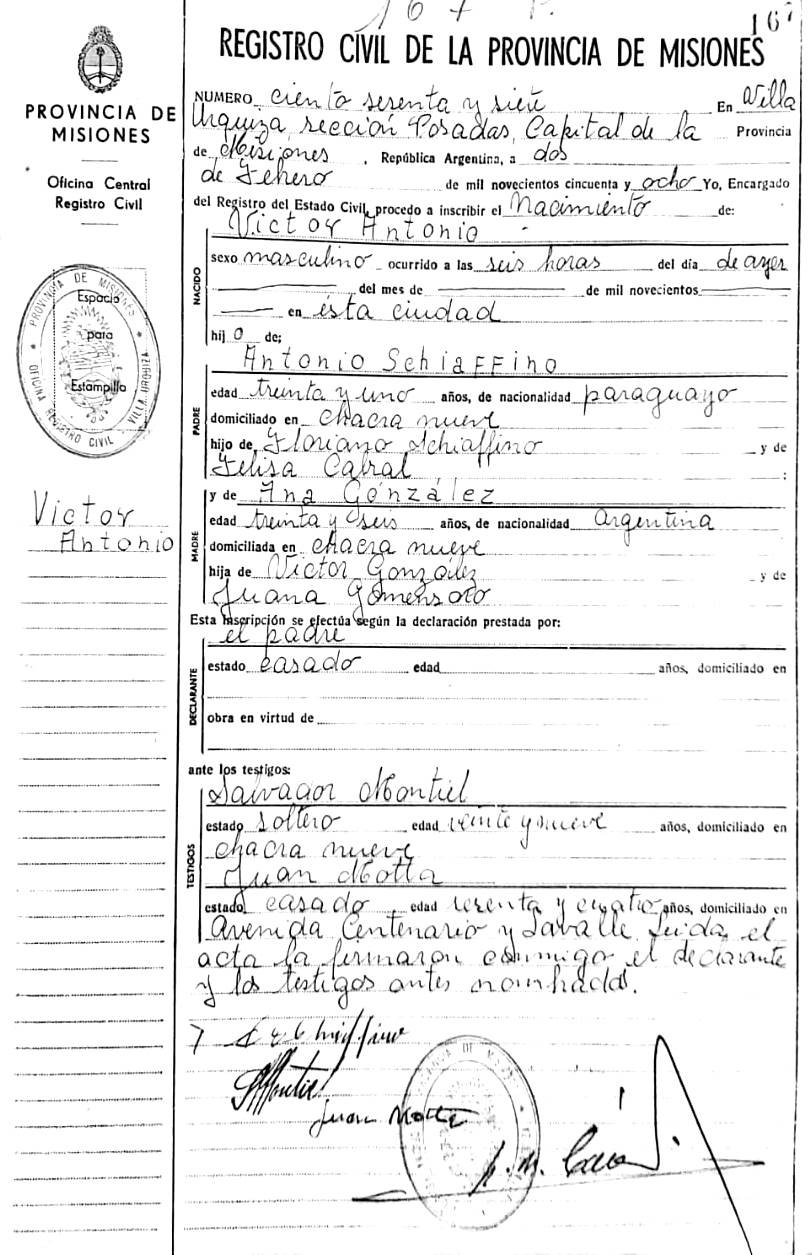 167
167
REGISTRO CIVIL DE LA PROVINCIA DE MISIONES
PROVINCIA DE
MISIONES
Oficina Central
Registro Civil
PROVINCIA DE MISIONES
OFICINA REGISTRO CIVIL VILLA URQUIZA
Espacio
para
Estampilla
Victor
Antonio
NUMERO ciento sesenta y siete En Villa
Urquiza, sección Posadas, Capital de la Provincia
de Misiones, República Argentina, a dos
de Fehero de mil novecientos cincuenta y ocho Yo, Encargado
del Registro del Estado Civil, procedo a inscribir el Nacimiento de:
Victor Antonio
NACIDO
sexo masculino ocurrido a las seis horas del día de ayer
del mes de de mil novecientos
en ésta ciudad
hij o de;
Antonio Schiaffino
PADRE
edad treinta y uno años, de nacionalidad paraguayo
domiciliado en chacra nueve
hijo de Floriano Schiaffino y de
Felisa Cabral :
y de Ana González
MADRE
edad treinta y seis años, de nacionalidad Argentina
domiciliada en chacra nueve
hija de Victor González y de
Juana Gomensoro
Esta inscripción se efectúa según la declaración prestada por:
el padre
DECLARANTE
estado casado edad años, domiciliado en
obra en virtud de
ante los testigos:
Salvador Montiel
TESTIGOS
estado soltero edad veinte y nueve años, domiciliado en
chacra nueve
Juan Motta
estado casado edad sesenta y cuatro años, domiciliado en
Avenida Centenario y Lavalle. Leida el
acta la firmaron conmigo el declarante
y los testigos antes nombrados.
Juan Motta